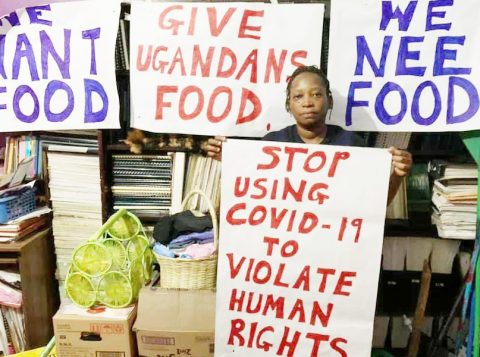 WE
WANT
FOOD
GIVE
UGANDANS
FOOD.
WE
NEE
FOOD
STOP
USING
COVID-19
TO
VIOLATE
HUMAN
RIGHTS